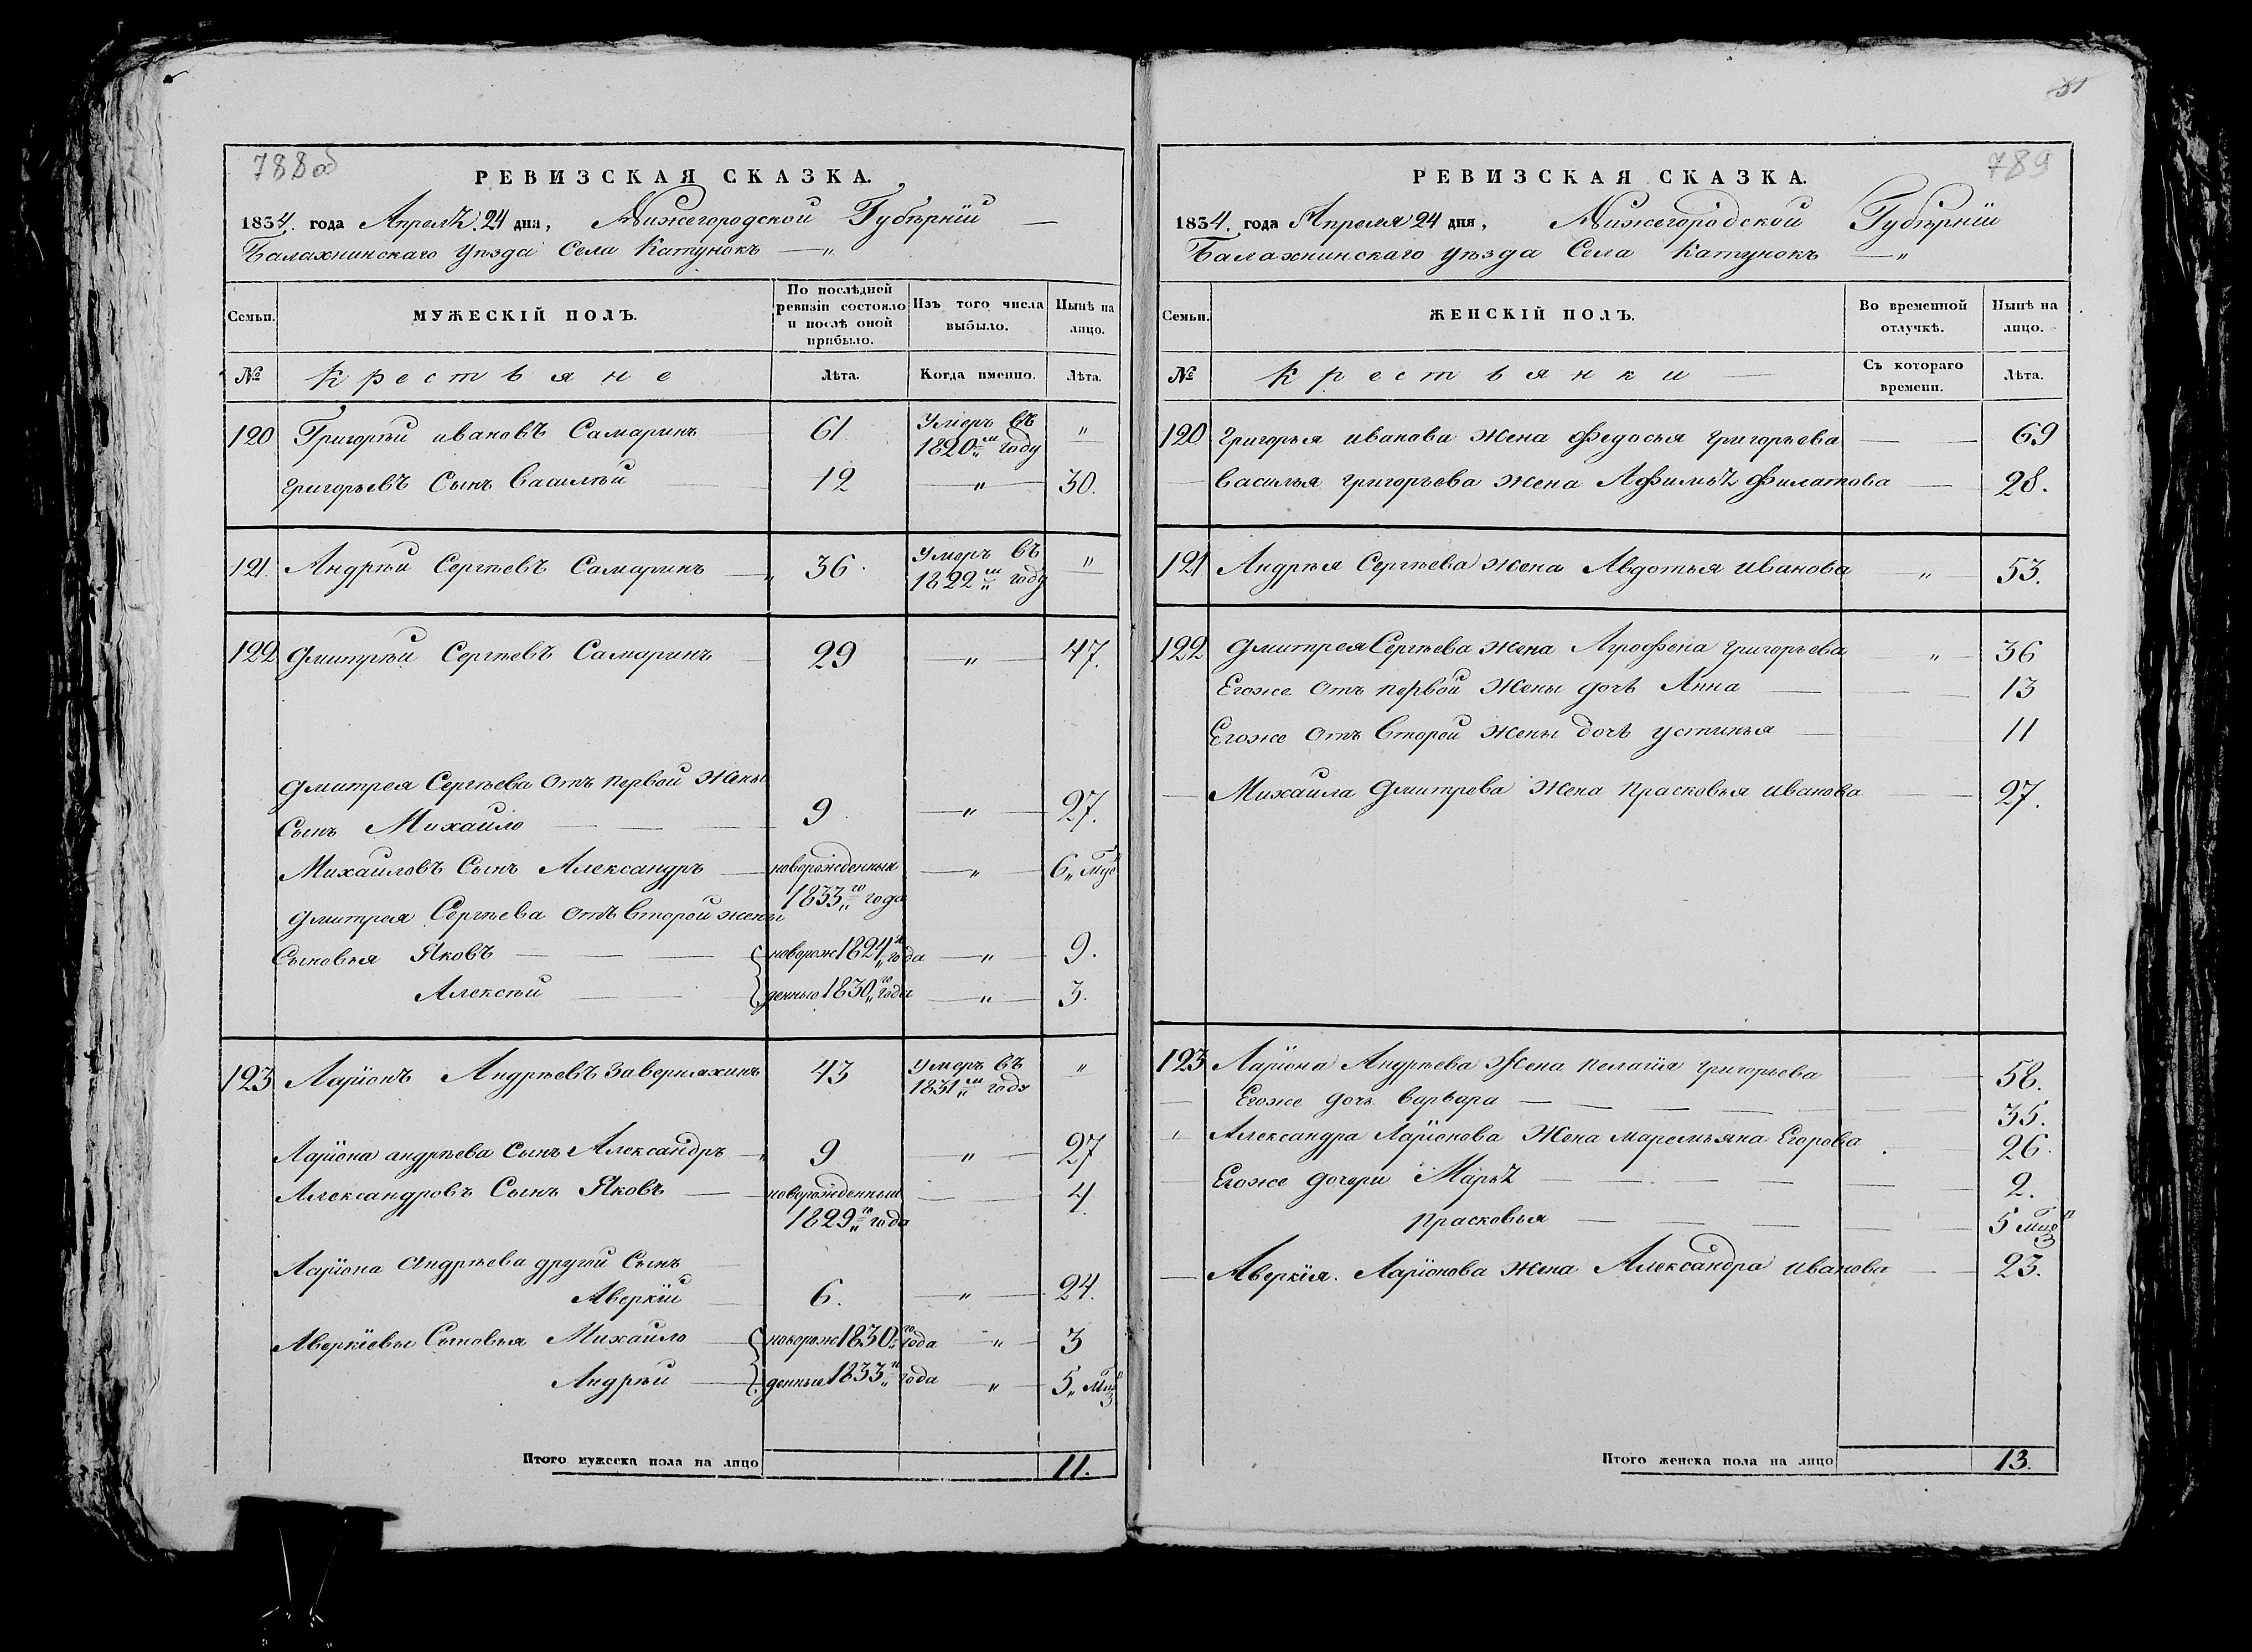 788об
РЕВИЗСКАЯ СКАЗКА.
1834. года Апреля 24 дня, Нижегородской Губѣрніи
Балахнинскаго уѣзда Села Катунокъ
Семьи.
МУЖЕСКІЙ ПОЛЪ.
По послѣдней ревизіи состояло и послѣ оной прибыло.
Изъ того числа выбыло.
Нынѣ на лицо.
№
Крестьяне
Лѣта.
Когда именно.
Лѣта.
120 Григорѣй ивановъ Самаринъ 61 Умеръ въ 1820м году "
Григорьевъ Сынъ Василѣй 12 " 30.
121. Андрѣй Сергѣевъ Самаринъ 36. Умеръ въ 1822м году "
122 Дмитрѣй Сергѣевъ Самаринъ 29 " 47.
Дмитрея Сергѣева отъ первой Жены
Сынъ Михайло 9. " 27.
Михайловъ Сынъ Александръ новорожденный 1833го года " 6,,
Дмитрея Сергѣева отъ второй жены
Сыновья Яковъ новорож 1824го года " 9.
Алексѣй денные 1830го года " 3.
123 Ларіонъ Андрѣевъ Заверняхинъ 43 Умеръ въ 1831м году "
Ларіона андрѣева Сынъ Александръ 9 " 27
Александровъ Сынъ Яковъ новорожденный 1829го года 4.
Ларіона Андрѣева другой Сынъ
Аверкій 6. " 24.
Аверкіевы Сыновья Михайло новорож 1830го года " 3
Андрѣй денные 1833го года " 5,,
Итого мужеска пола на лицо 11.
789
РЕВИЗСКАЯ СКАЗКА.
1834. года Апреля 24 дня, Нижегородской Губѣрніи
Балахнинскаго уѣзда Села Катунокъ
Семьи.
ЖЕНСКІЙ ПОЛЪ.
Во временной отлучкѣ.
Нынѣ на лицо.
№
Крестьянки
Съ котораго времени.
Лѣта.
120 Григорья иванова жена Федосья Григорьева 69
Василья григорьева жена Афимья Филатова 28.
121 Андрѣя Сергѣева жена Авдотья Иванова " 53.
122 Дмитрея Сергѣева жена Агрофена Григорьева " 36
Егоже отъ первой жены дочь Анна 13
Егоже отъ второй жены дочь устинья 11
Михайла Дмитрева жена Прасковья иванова 27.
123 Ларіона Андрѣева жена пелагія григорьева 58.
Егоже дочь варвара 35.
Александра Ларіонова жена маремьяна Егорова 26.
Егоже дочери Марья 2.
Прасковья 5
Аверкія Ларіонова жена Александра иванова 23.
Итого женска пола на лицо 13.